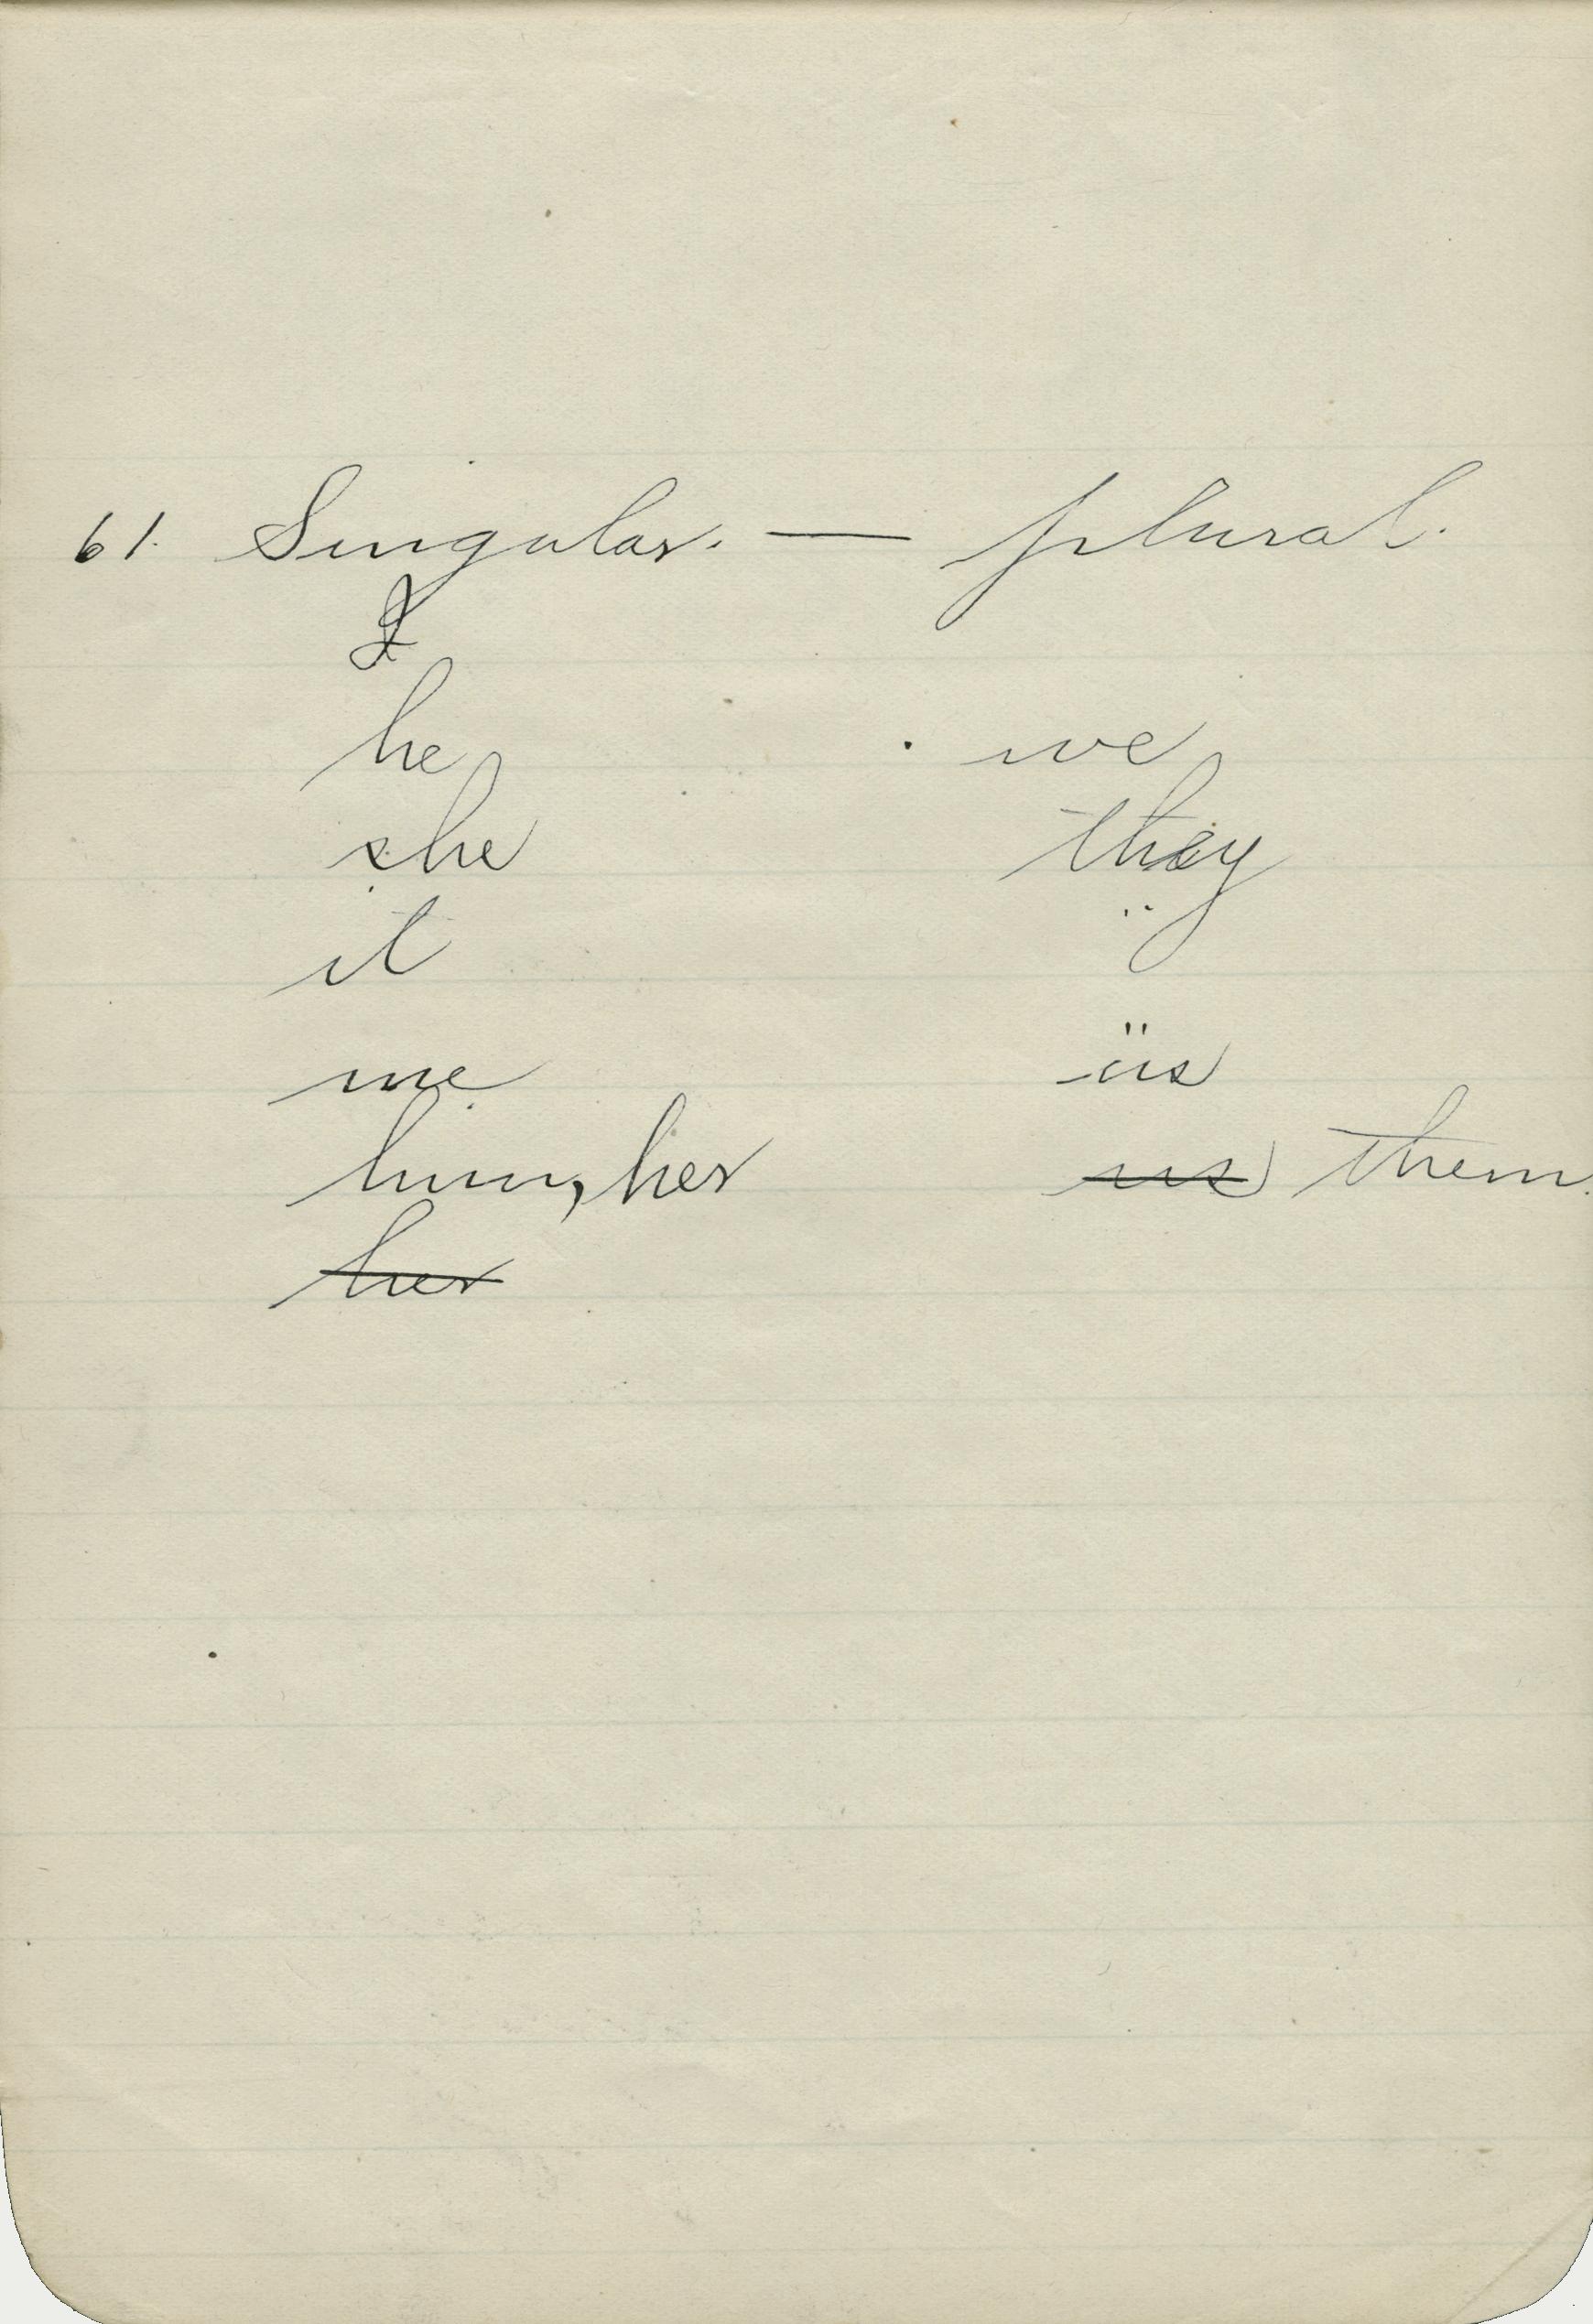 61. Singular. — plural.
I
he we
she they
it "
me üs
him, her us them.
her